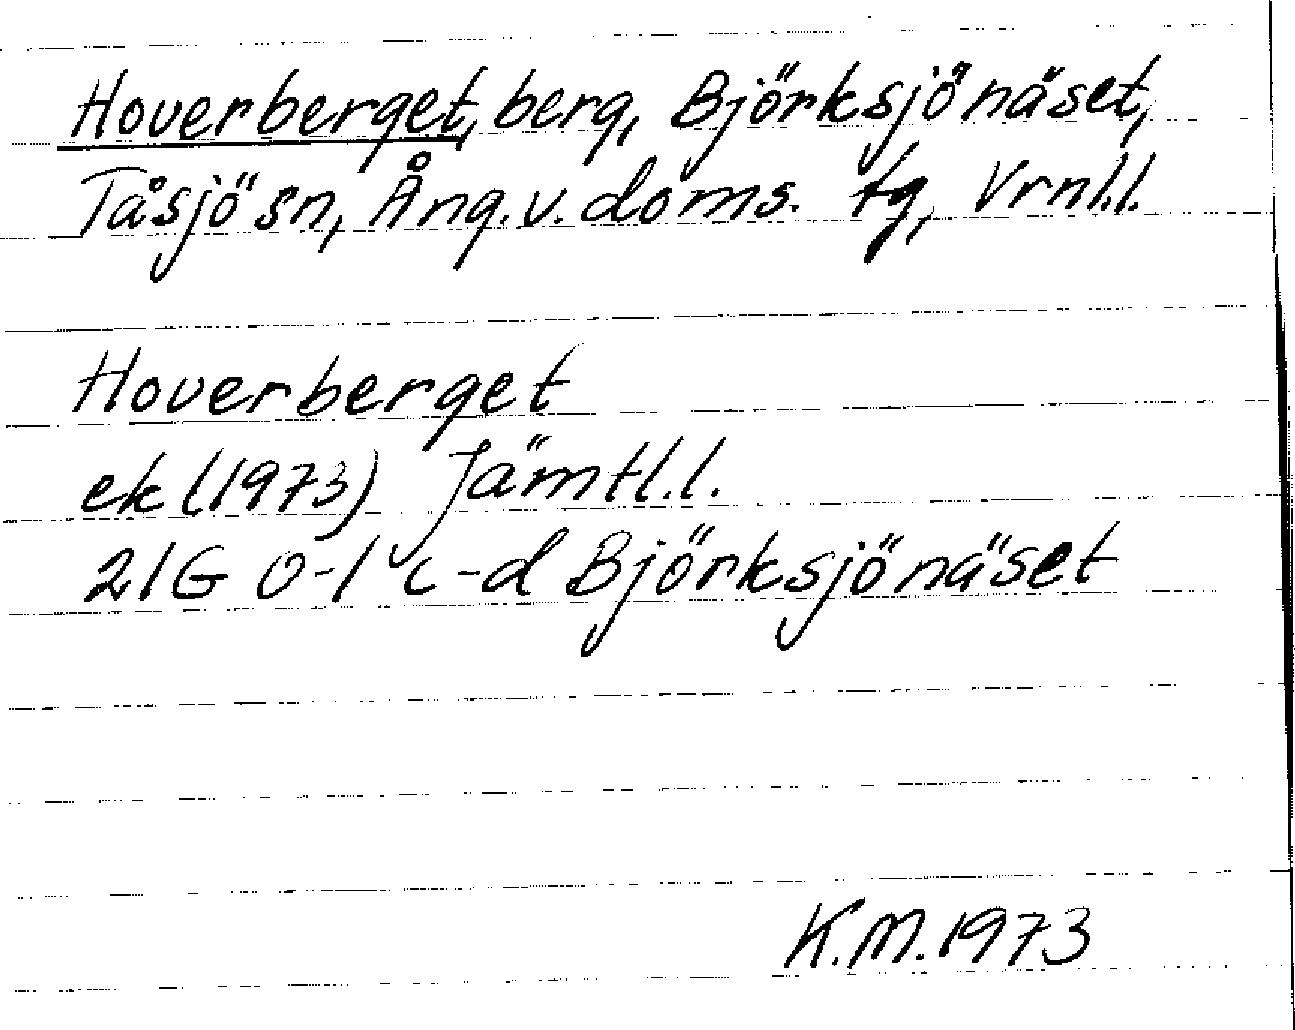 Hoverberget, berg, Björksjönäset,
Tåsjö sn, Ång. v. doms. tg, Vrnl.l.
Hoverberget
ek (1973) Jämtl.l.
21G 0-1 c-d Björksjönäset
K.M. 1973